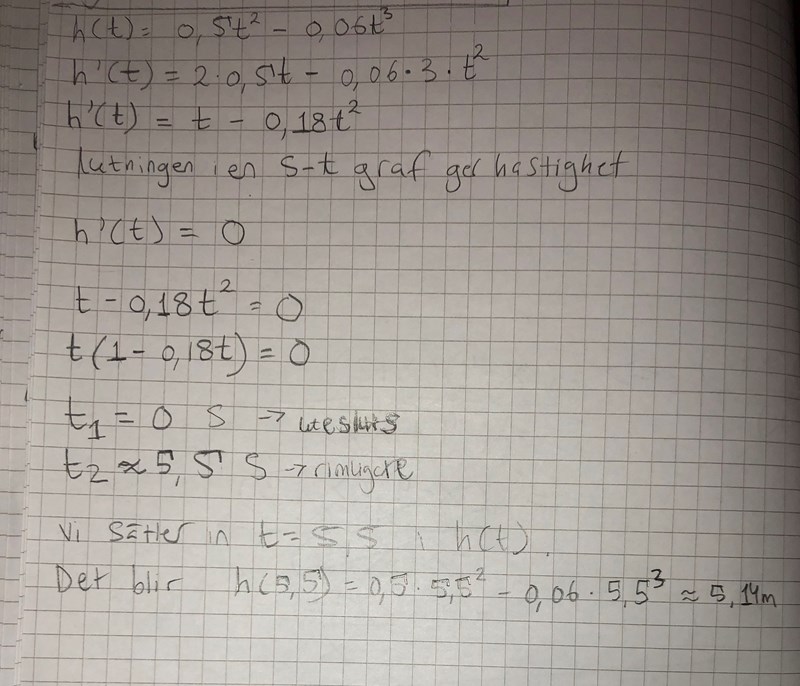 h(t) = 0,5t² - 0,06t³
h'(t) = 2·0,5t - 0,06·3·t²
h'(t) = t - 0,18t²
lutningen i en s-t graf ger hastighet
h'(t) = 0
t - 0,18t² = 0
t(1 - 0,18t) = 0
t₁ = 0 s → utesluts
t₂ ≈ 5,5 s → rimligare
Vi sätter in t = 5,5 i h(t).
Det blir h(5,5) = 0,5·5,5² - 0,06·5,5³ ≈ 5,14m